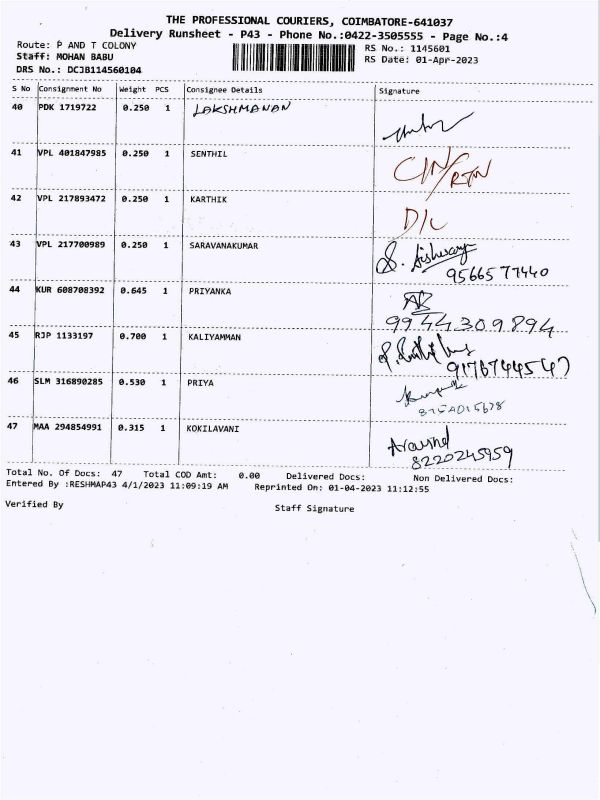 THE PROFESSIONAL COURIERS, COIMBATORE-641037
Delivery Runsheet - P43 - Phone No.:0422-3505555 - Page No.:4
Route: P AND T COLONY RS No.: 1145601
Staff: MOHAN BABU RS Date: 01-Apr-2023
DRS No.: DCJB114560104
S No Consignment No Weight PCS Consignee Details Signature
40 PDK 1719722 0.250 1 LAKSHMANAN
41 VPL 401847985 0.250 1 SENTHIL
42 VPL 217893472 0.250 1 KARTHIK
D/L
43 VPL 217700989 0.250 1 SARAVANAKUMAR
9566577440
44 KUR 608708392 0.645 1 PRIYANKA
9944309894
45 RJP 1133197 0.700 1 KALIYAMMAN
46 SLM 316890285 0.530 1 PRIYA
47 MAA 294854991 0.315 1 KOKILAVANI
8220245959
Total No. Of Docs: 47 Total COD Amt: 0.00 Delivered Docs: Non Delivered Docs:
Entered By :RESHMAP43 4/1/2023 11:09:19 AM Reprinted On: 01-04-2023 11:12:55
Verified By Staff Signature